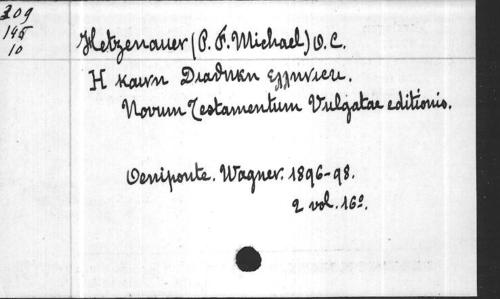 309
145
10
Hetzenauer (P. F. Michael) O. C.
Η καινη Διαθηκη ελληνιστι.
Novum Testamentum Vulgatae editionis.
Oeniponte. Wagner. 1896-98.
2 vol. 16º.